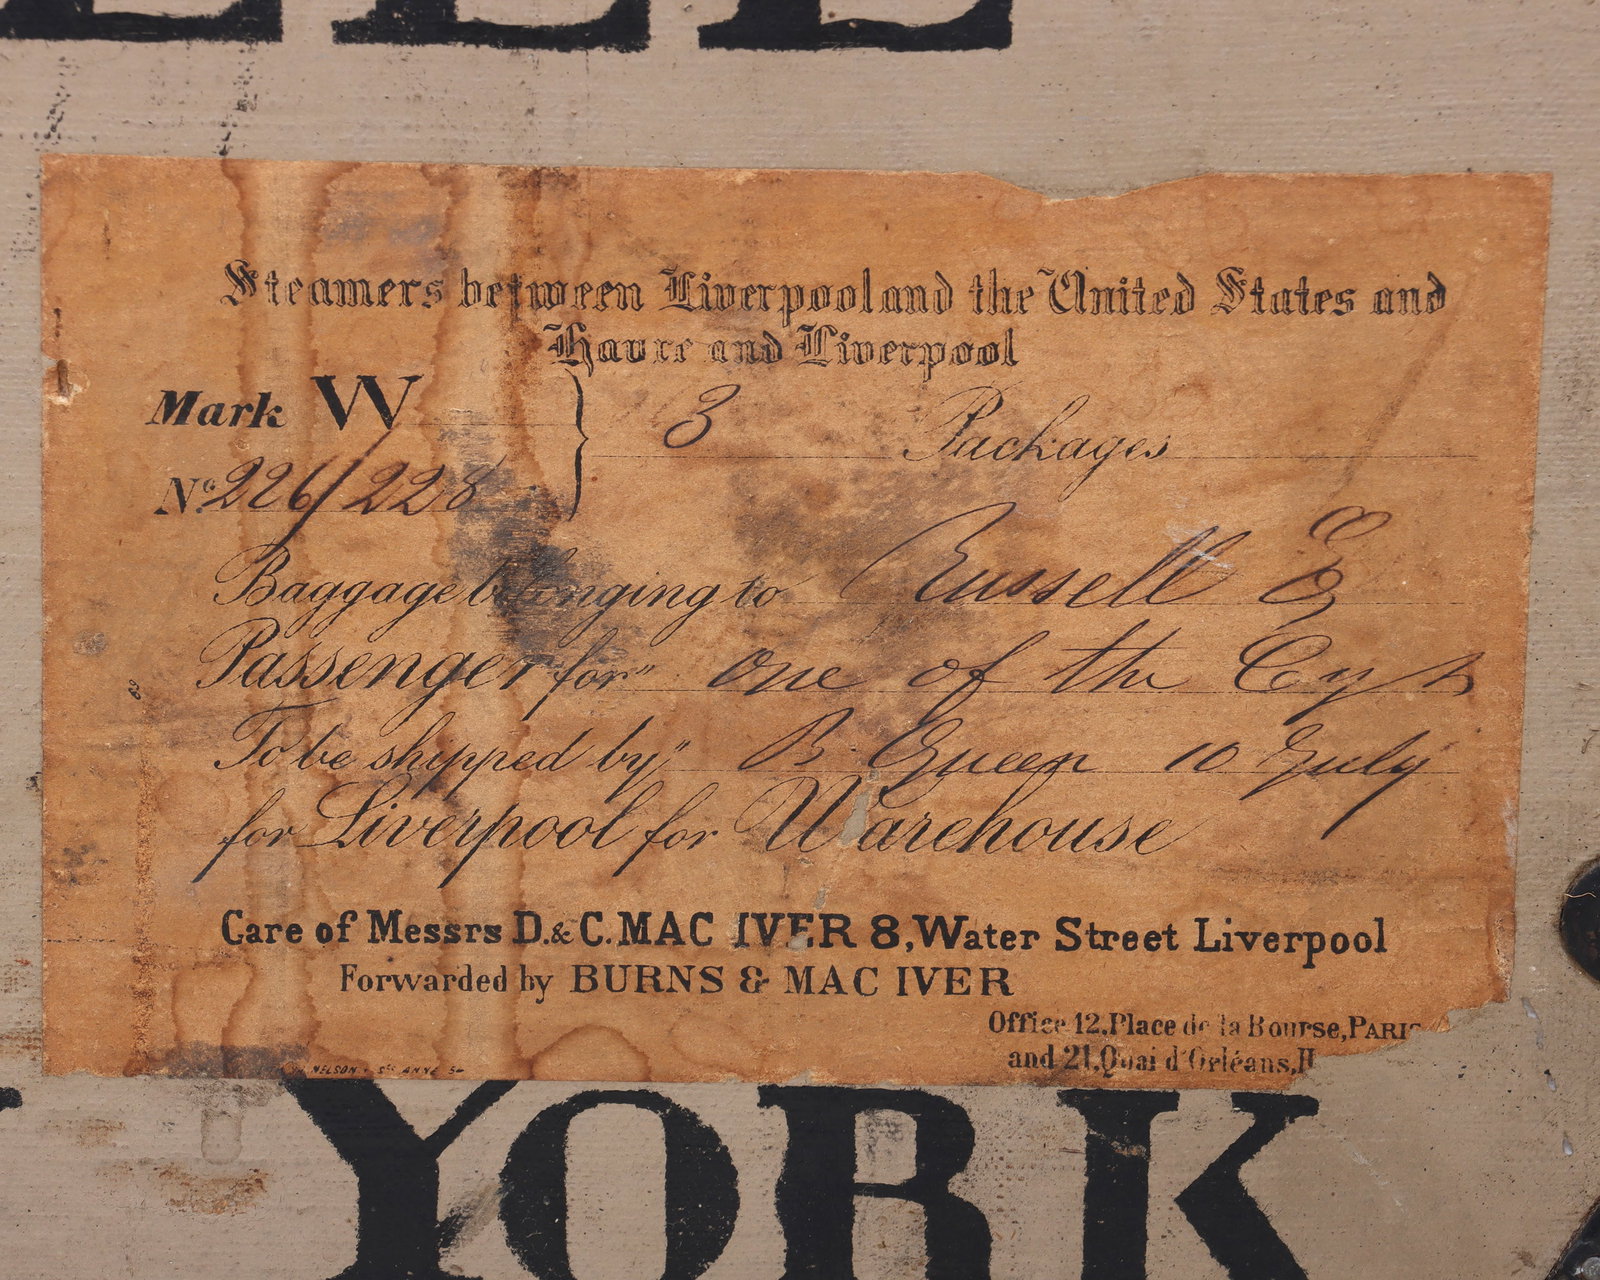 Steamers between Liverpool and the United States and
Havre and Liverpool
Mark W
3 Packages
No 226/228
Baggage belonging to Russell E
Passenger for" one of the
To be shipped by" B. Queen 10 July
for Liverpool for Warehouse
Care of Messrs D.& C. MAC IVER 8, Water Street Liverpool
Forwarded by BURNS & MAC IVER
Office 12, Place de la Bourse, PARIS
and 21, Quai d'Orléans, H
NELSON
YORK